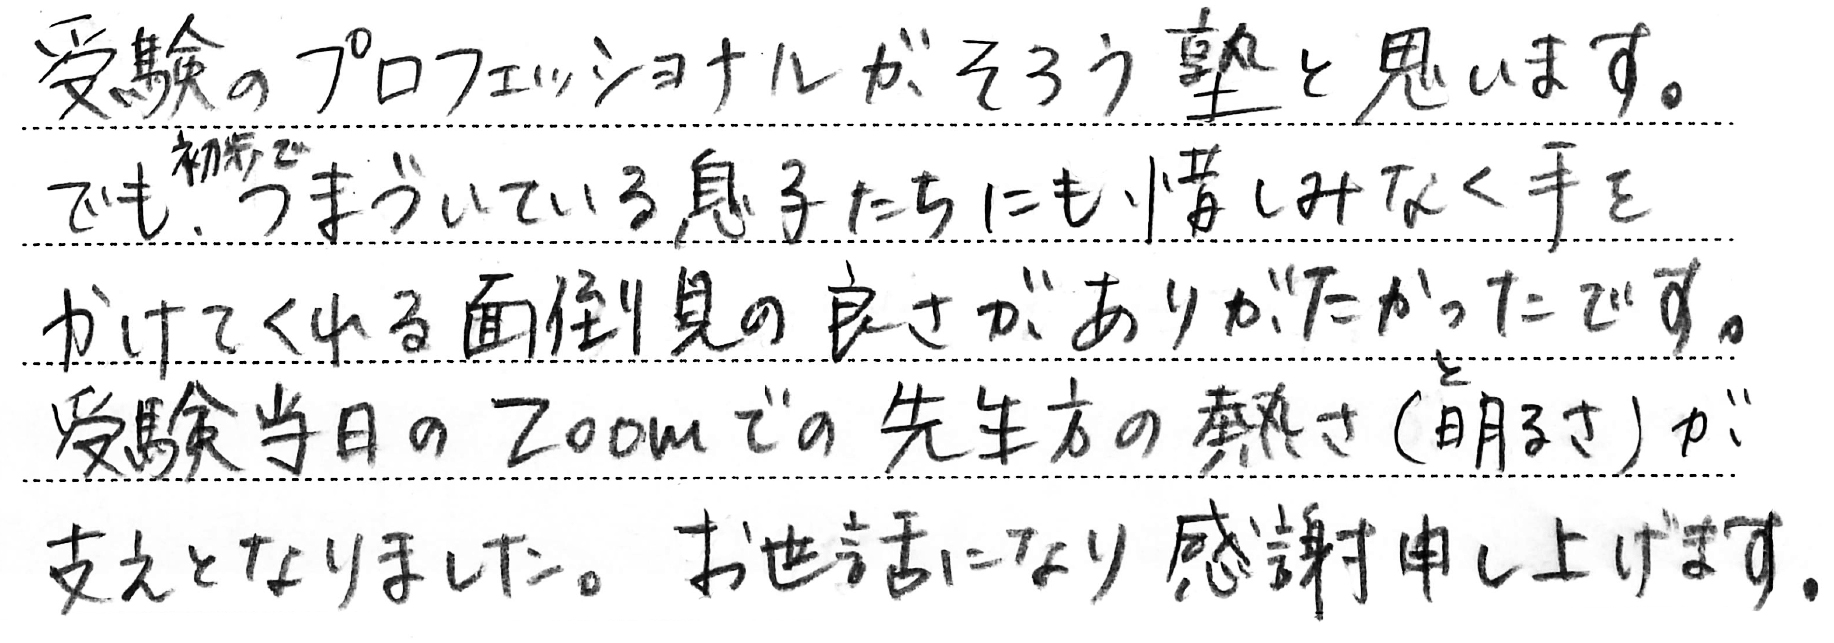 受験のプロフェッショナルがそろう塾と思います。
でも、初歩でつまづいている息子たちにも惜しみなく手を
かけてくれる面倒見の良さがありがたかったです。
受験当日のZoomでの先生方の熱さ(と明るさ)が
支えとなりました。お世話になり感謝申し上げます。